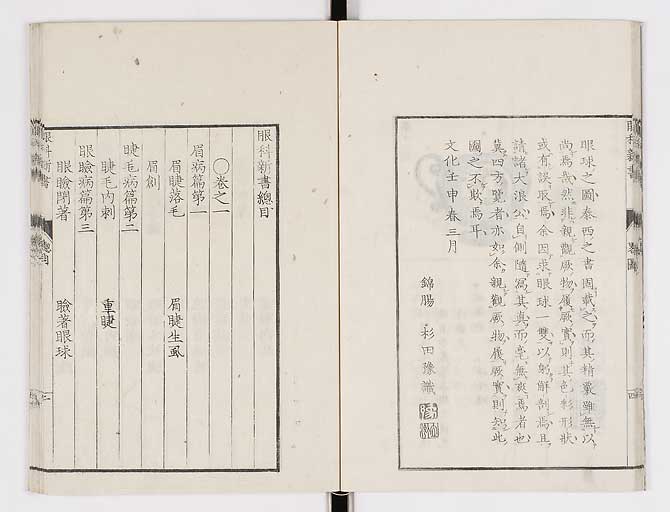 眼球之圖泰西之書固載之而其精巖雖無以
尚焉哉然非親觀厥物履厥實則其色彩形狀
或有誤取焉余因求眼球一雙以躬解剖焉且
請諸大浪公自側隨寫其真而毫無爽焉者也
冀四方覽者亦如余親觀厥物履厥實則知此
圖之不欺焉耳
文化壬申春三月
錦腸 杉田豫識
眼科新書總目
○卷之一
眉病篇第一
眉睫落毛 眉睫生虱
眉創
睫毛病篇第二
睫毛內刺 重睫
眼瞼病篇第三
眼瞼閉著 瞼著眼球
眼科新書